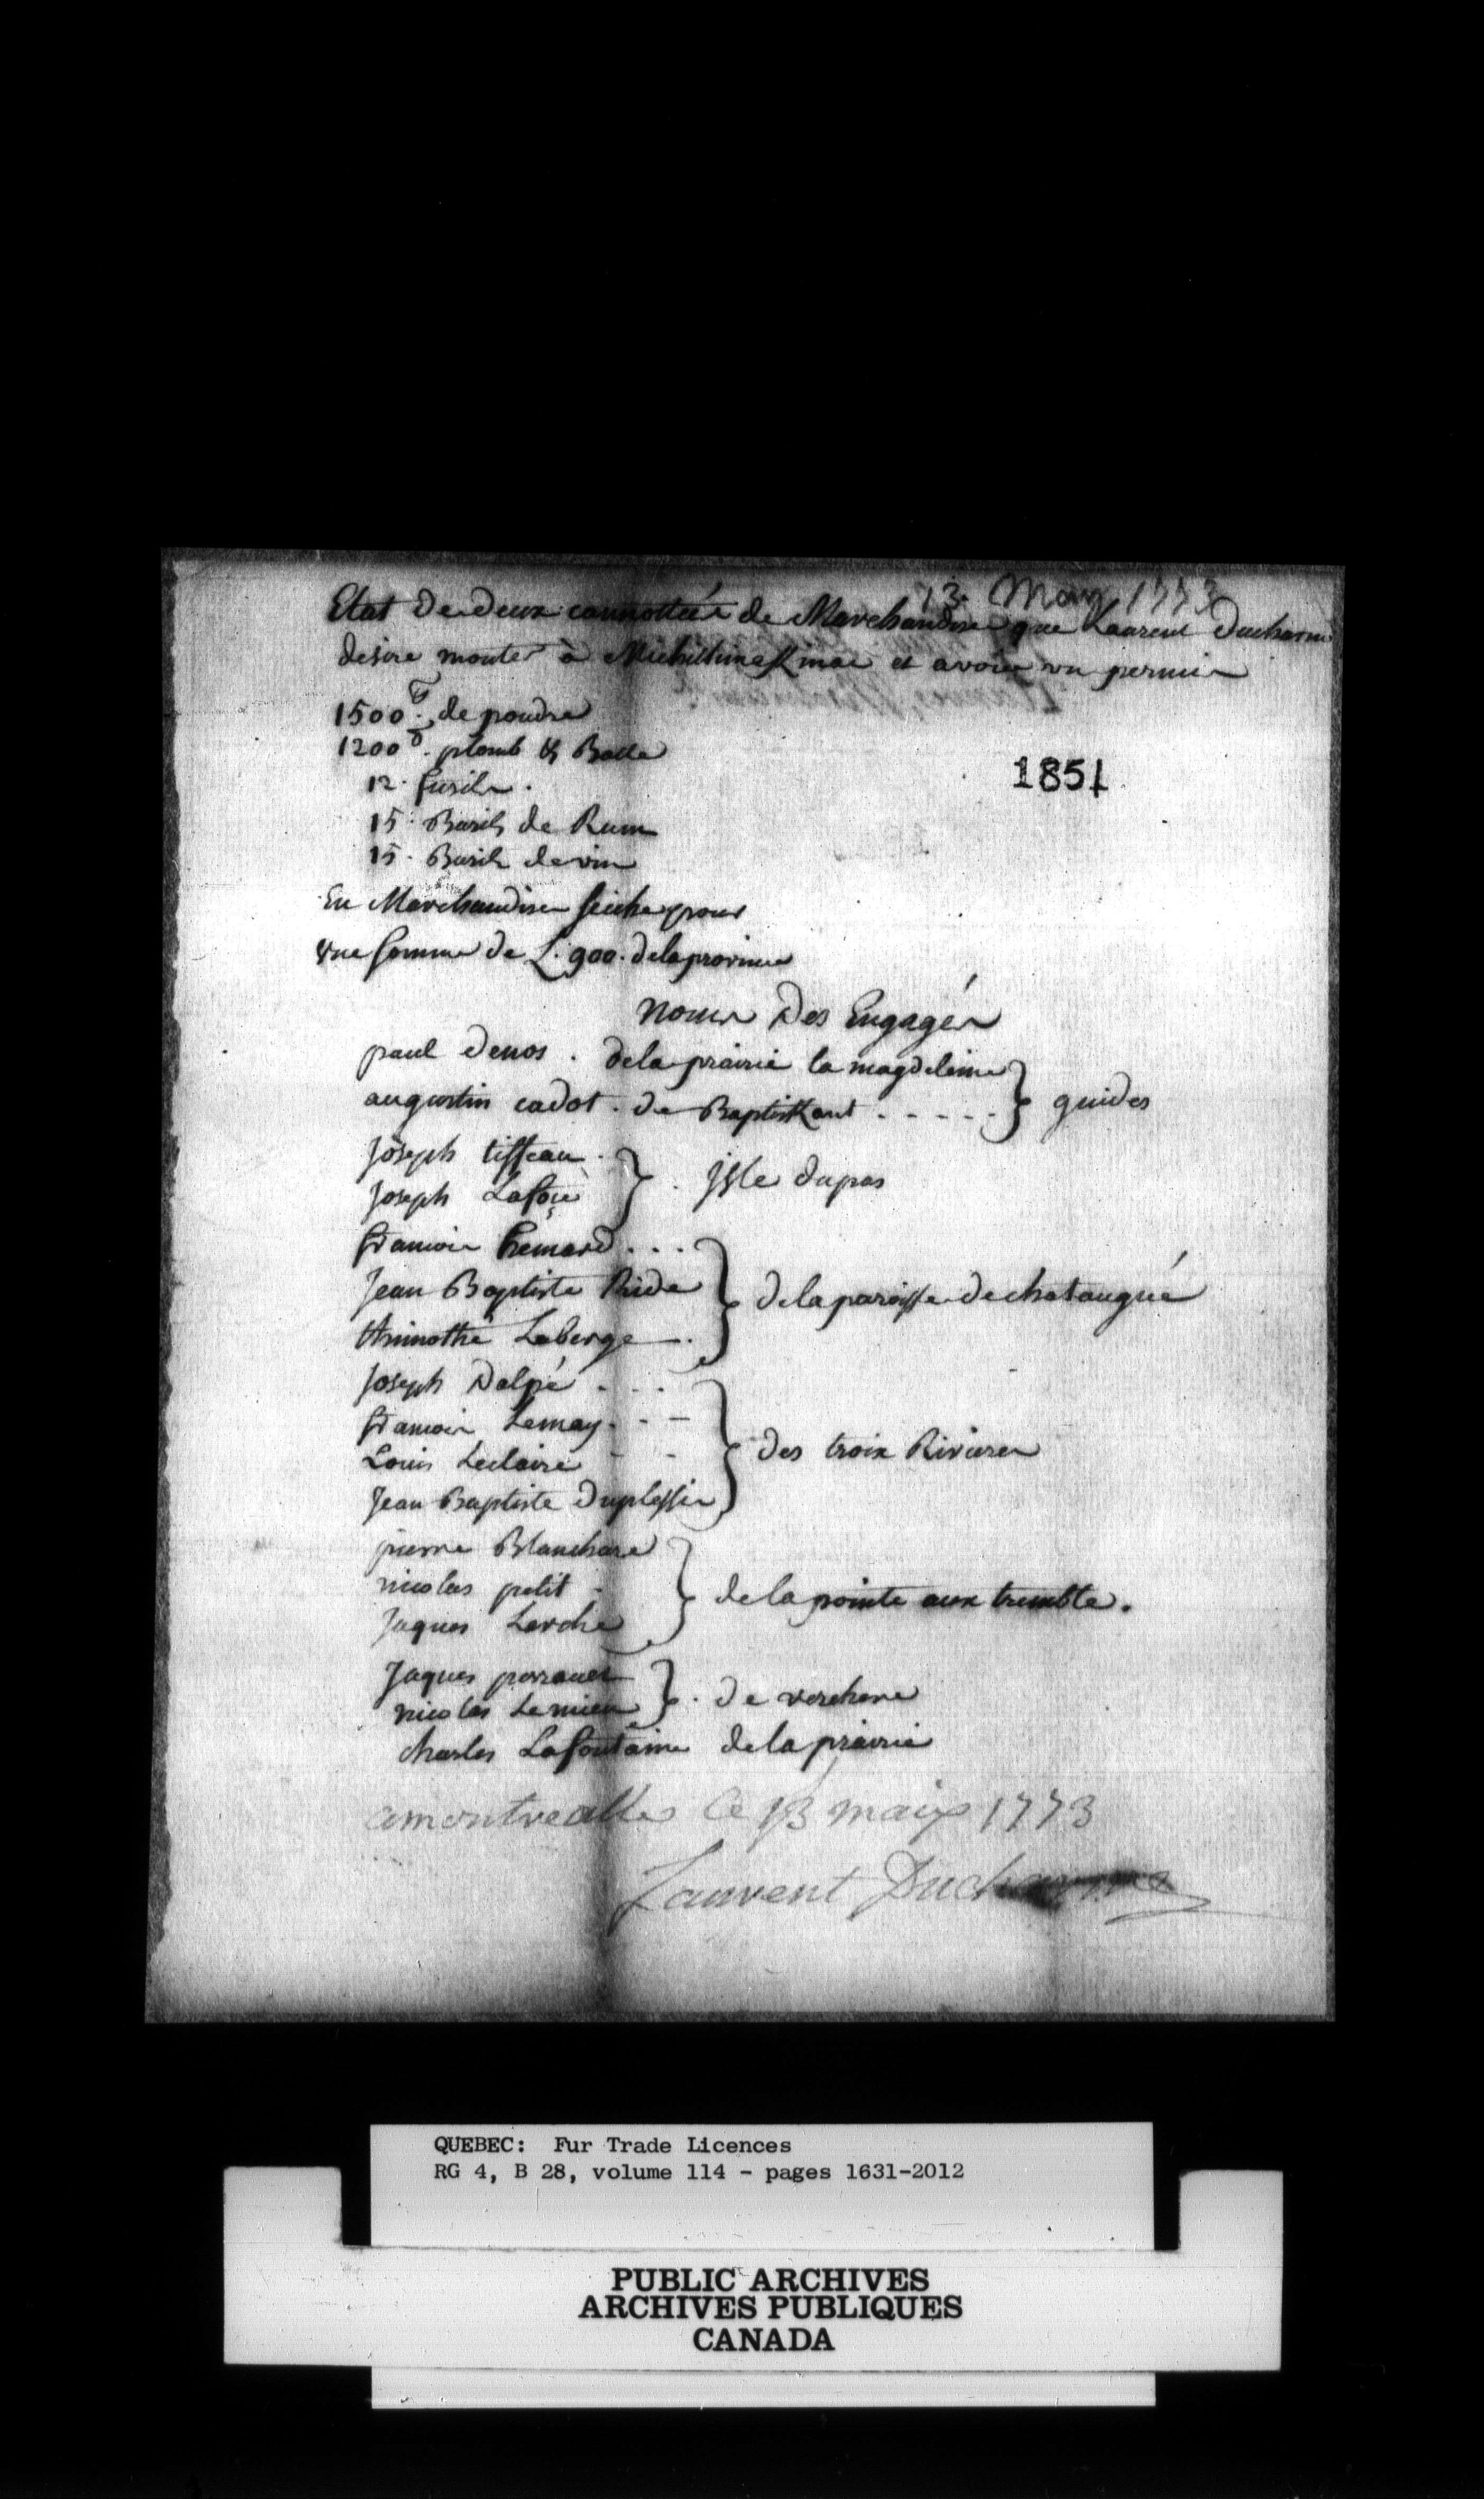 13 May 1773
Etat de deux cannottées de Marchandises que Laurent Ducharme
desire monter à Michilimakinac et avoir un permis
1500 lb de poudre
1200 lb plomb & Balle
12 fusils
15 Barils de Rum
15 Barils de vin
En Marchandises seiche pour
une somme de L. 900. de la province
1851
Noms Des Engagés
paul denos . de la prairie la magdeleine
augustin cadot . de Baptiskant . . . . . } guides
Joseph tisseau
Joseph Lafou } Isle dupas
francois hemard . . .
Jean Baptiste Ride } de la paroisse de chataugué
thimothé Laberge
Joseph Dalpé . . .
francois Lemay
Louis Leclaire } des troix Rivieres
Jean Baptiste duplessis
pierre Blanchard
nicolas petit } de la pointe aux tremble.
Jaques Larche
Jaques perrauet
nicolas Lemieu } de verchere
charles Lafontaine de la prairie
a montrealle ce 13 maiy 1773
Laurent Ducharme
QUEBEC: Fur Trade Licences
RG 4, B 28, volume 114 - pages 1631-2012
PUBLIC ARCHIVES
ARCHIVES PUBLIQUES
CANADA